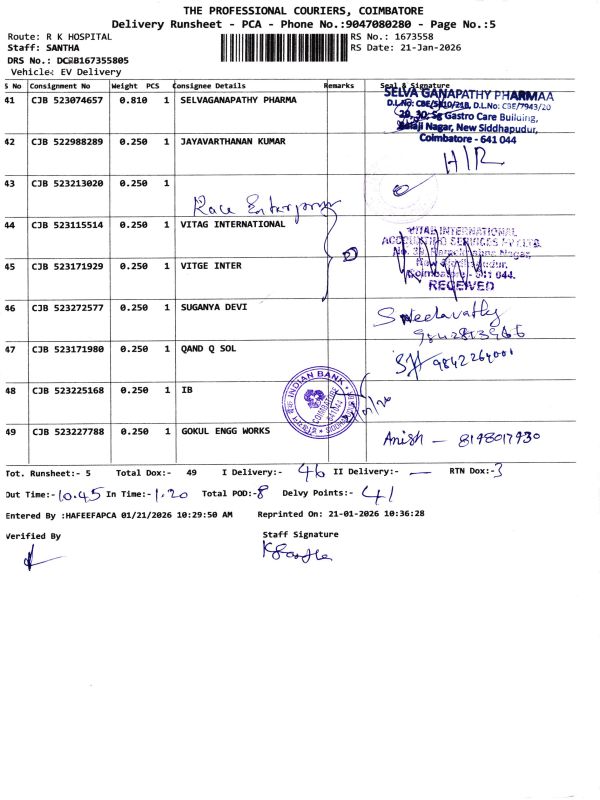 THE PROFESSIONAL COURIERS, COIMBATORE
Delivery Runsheet - PCA - Phone No.:9047080280 - Page No.:5
Route: R K HOSPITAL
RS No.: 1673558
Staff: SANTHA
RS Date: 21-Jan-2026
DRS No.: DCBB167355805
Vehicle: EV Delivery
S No Consignment No Weight PCS Consignee Details Remarks Seal & Signature
41 CJB 523074657 0.810 1 SELVAGANAPATHY PHARMA
SELVA GANAPATHY PHARMAA
29, 30, Sg Gastro Care Building,
Balaji Nagar, New Siddhapudur,
Coimbatore - 641 044
42 CJB 522988289 0.250 1 JAYAVARTHANAN KUMAR
H/R
43 CJB 523213020 0.250 1
44 CJB 523115514 0.250 1 VITAG INTERNATIONAL
VITAG INTERNATIONAL
ACCOUNTING SERVICES PVT LTD.
Coimbatore - 641 044.
RECEIVED
45 CJB 523171929 0.250 1 VITGE INTER
46 CJB 523272577 0.250 1 SUGANYA DEVI
47 CJB 523171980 0.250 1 QAND Q SOL
9842264001
48 CJB 523225168 0.250 1 IB
INDIAN BANK
COIMBATORE
641 044
49 CJB 523227788 0.250 1 GOKUL ENGG WORKS
Anish - 8198017930
Tot. Runsheet:- 5 Total Dox:- 49 I Delivery:- 46 II Delivery:- — RTN Dox:-3
Out Time:-10.45 In Time:-1.20 Total POD:-8 Delvy Points:- 41
Entered By :HAFEEFAPCA 01/21/2026 10:29:50 AM Reprinted On: 21-01-2026 10:36:28
Verified By Staff Signature